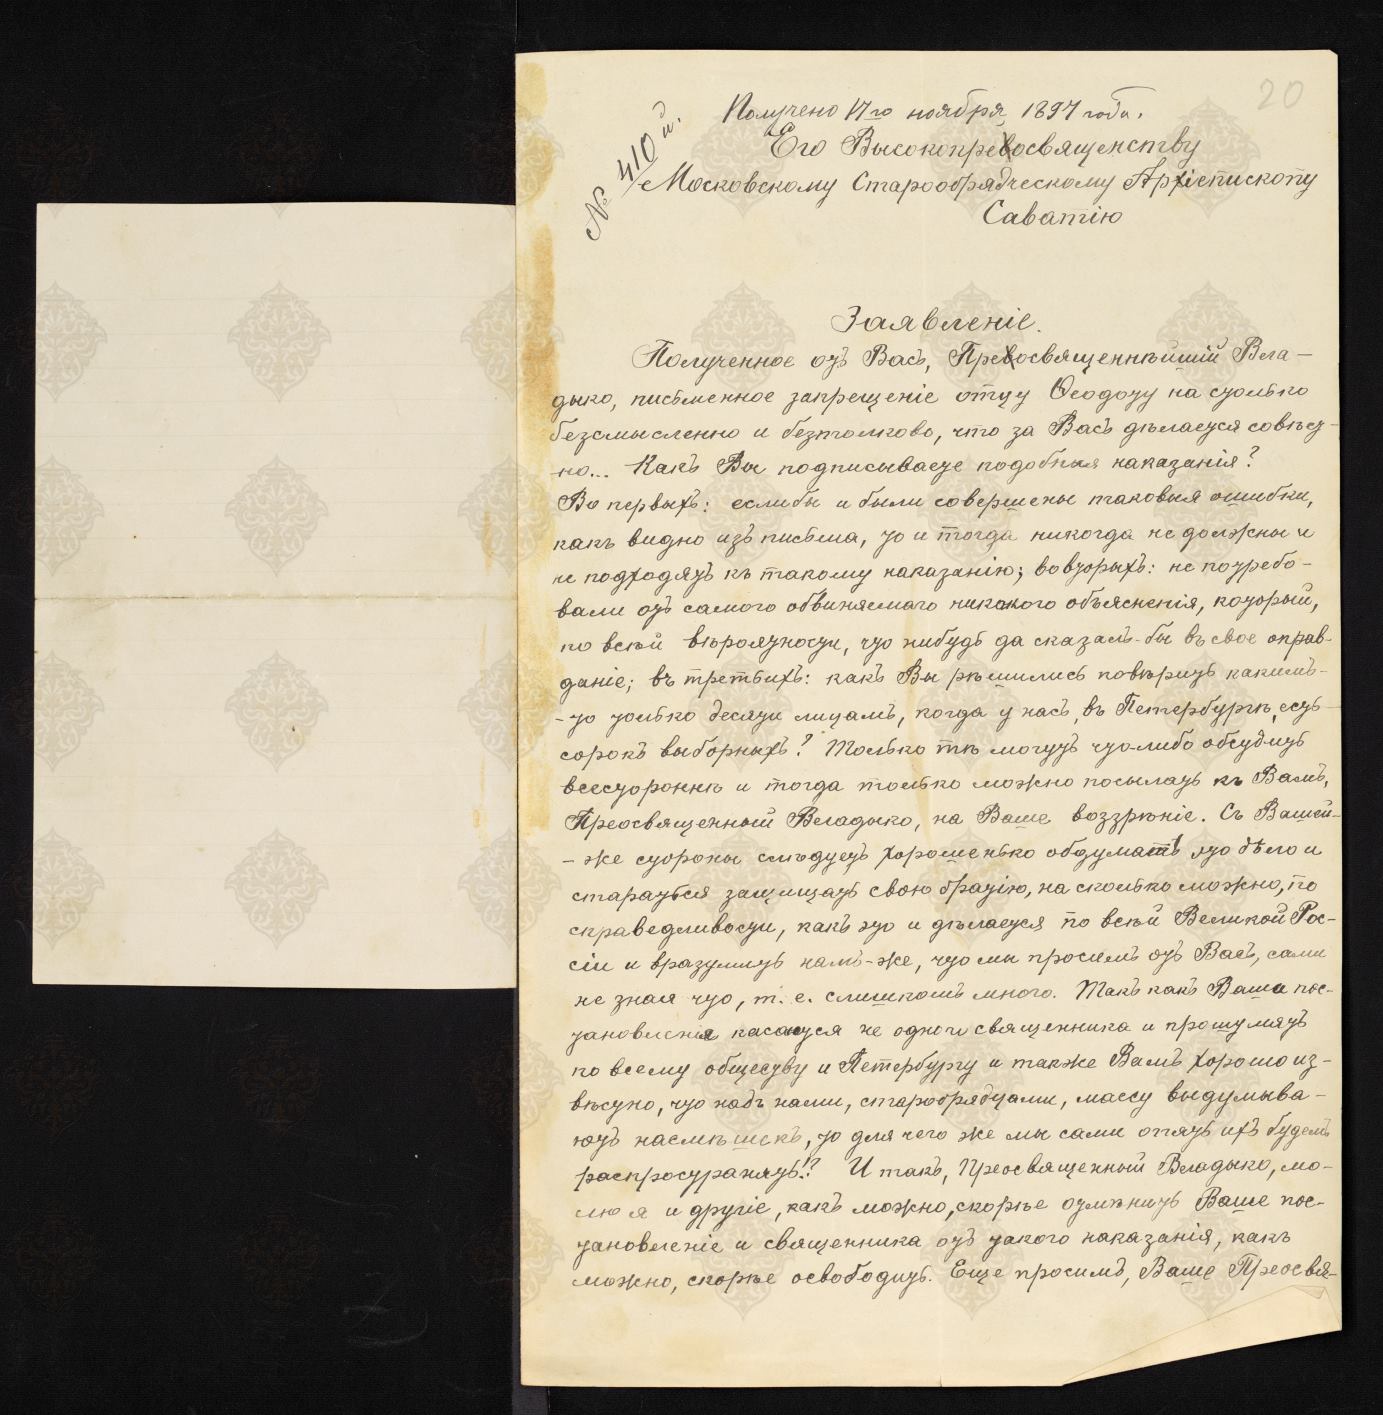 20
Получено 17го ноября 1897 года.
№ 410 и.
Его Высокопреосвященству
Московскому Старообрядческому Архіепископу
Саватію
Заявленіе.
Полученное отъ Васъ, Преосвященнѣйшій Вла-
дыко, письменное запрещеніе отцу Ѳеодоту на столько
безсмысленно и безтолково, что за Васъ дѣлается совѣст-
но... Какъ Вы подписываете подобныя наказанія?
Во первыхъ: еслибы и были совершены таковыя ошибки,
какъ видно изъ письма, то и тогда никогда не должны и
не подходятъ къ такому наказанію; вовторыхъ: не потребо-
вали отъ самого обвиняемаго никакого объясненія, который,
по всей вѣроятности, что нибудь да сказалъ-бы въ свое оправ-
даніе; въ третьихъ: какъ Вы рѣшились повѣрить какимъ-
-то только десяти лицамъ, когда у насъ, въ Петербургѣ, есть
сорокъ выборныхъ? Только тѣ могутъ что-либо обсудить
всесторонне и тогда только можно посылать къ Вамъ,
Преосвященный Владыко, на Ваше воззрѣніе. Съ Вашей-
-же стороны слѣдуетъ хорошенько обдумать это дѣло и
стараться защищать свою братію, на сколько можно, по
справедливости, какъ это и дѣлается по всей Великой Рос-
сіи и вразумить намъ-же, что мы просимъ отъ Васъ, сами
не зная что, т. е. слишкомъ много. Такъ какъ Ваши пос-
тановленія касаются не одного священника и прошумятъ
по всему обществу и Петербургу и также Вамъ хорошо из-
вѣстно, что надъ нами, старобрядцами, массу выдумыва-
ютъ насмѣшекъ, то для чего же мы сами опять ихъ будемъ
распространять!? И такъ, Преосвященный Владыко, мо-
лю я и другіе, какъ можно, скорѣе отмѣнить Ваше пос-
тановленіе и священника отъ такого наказанія, какъ
можно, скорѣе освободить. Еще просимъ, Ваше Преосвя-